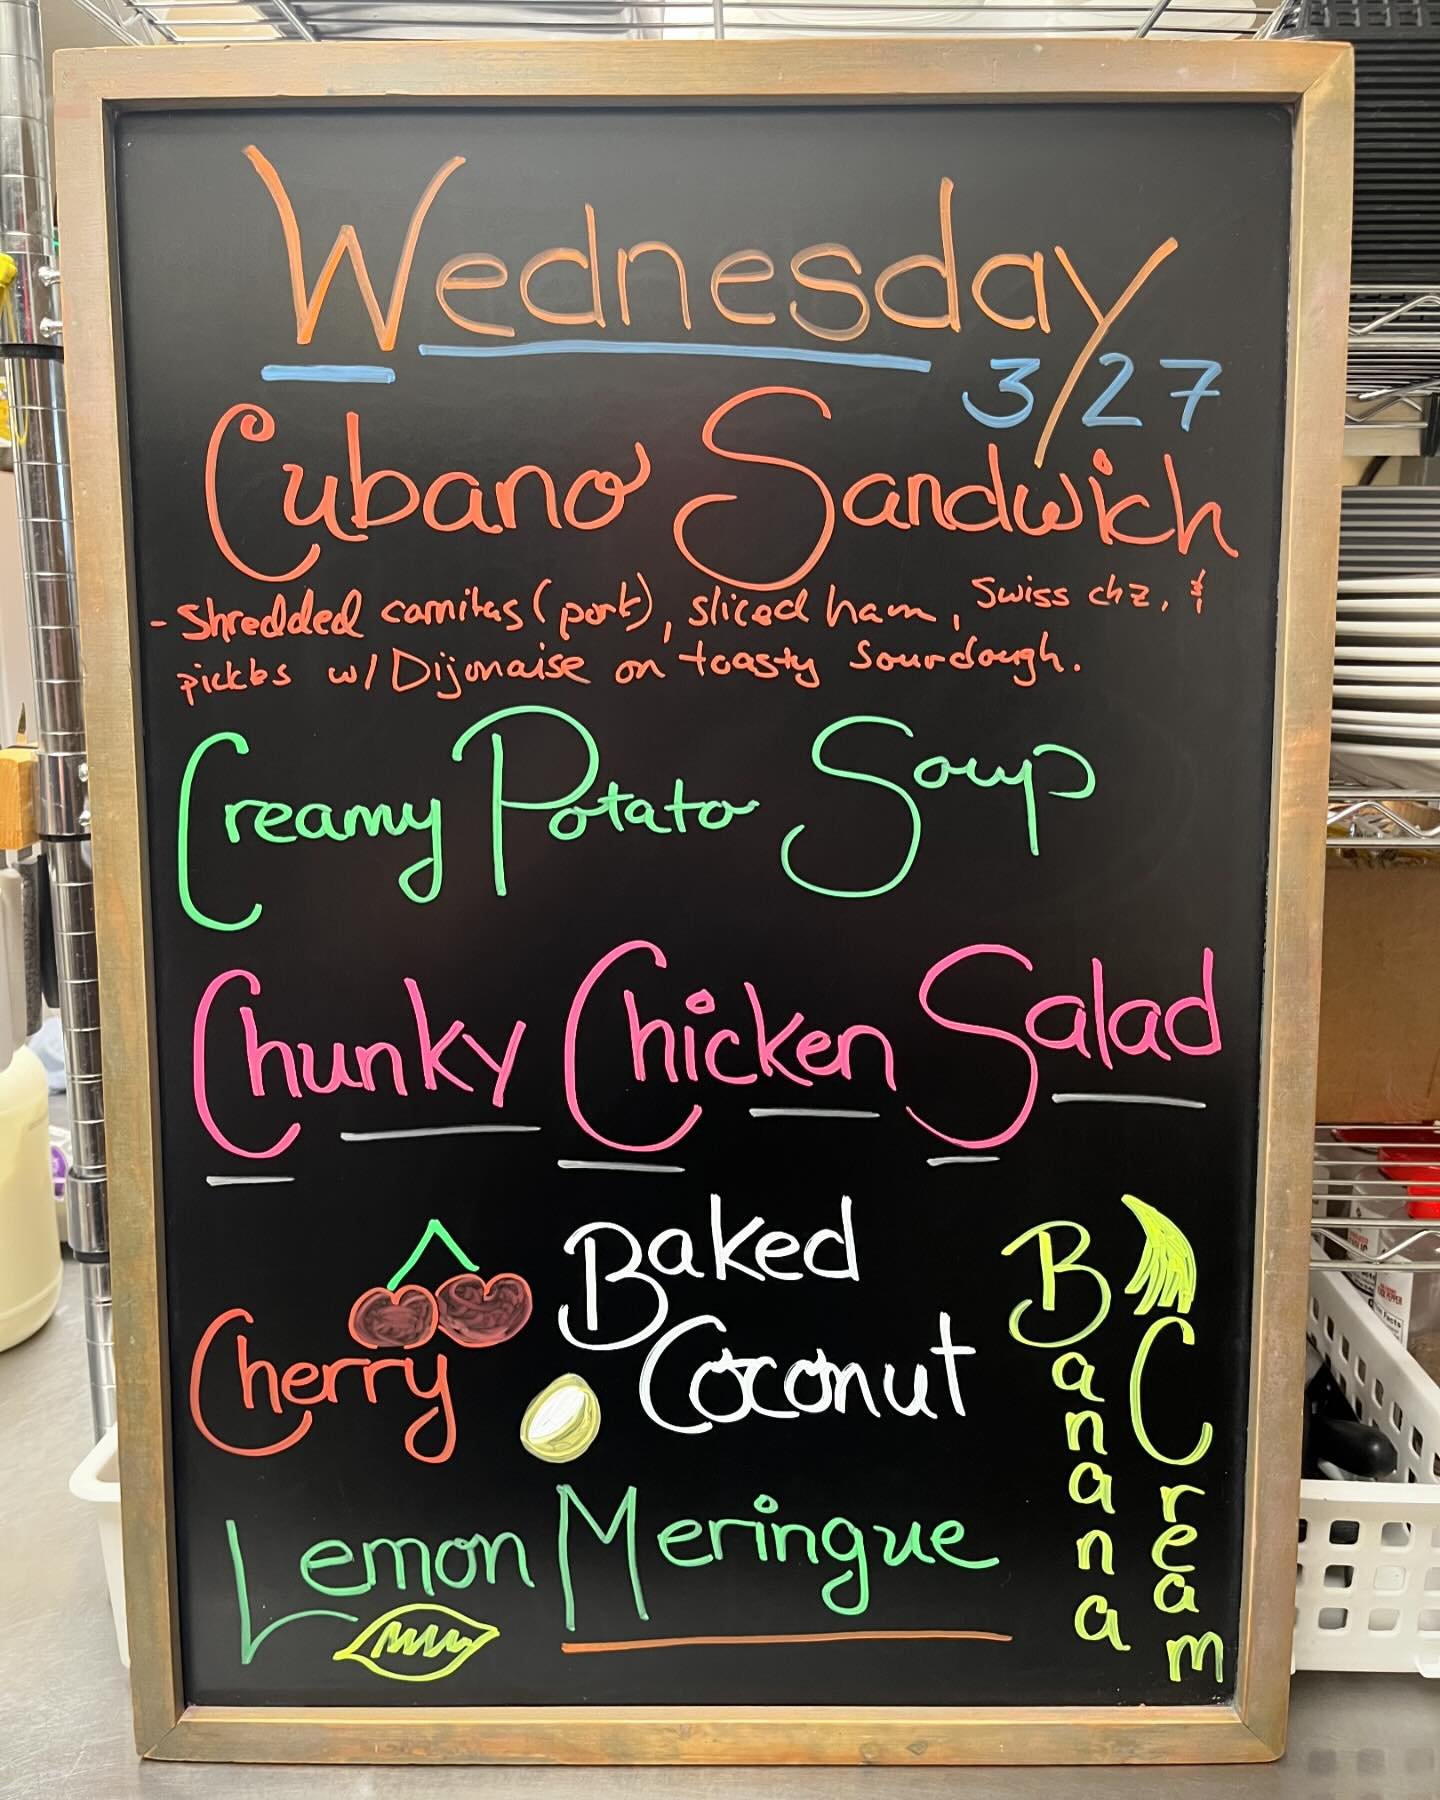 Wednesday
3/27
Cubano Sandwich
- shredded carnitas (pork), sliced ham, Swiss chz, &
pickles w/ Dijonaise on toasty sourdough.
Creamy Potato Soup
Chunky Chicken Salad
Cherry
Baked
Coconut
Banana
Cream
Lemon Meringue